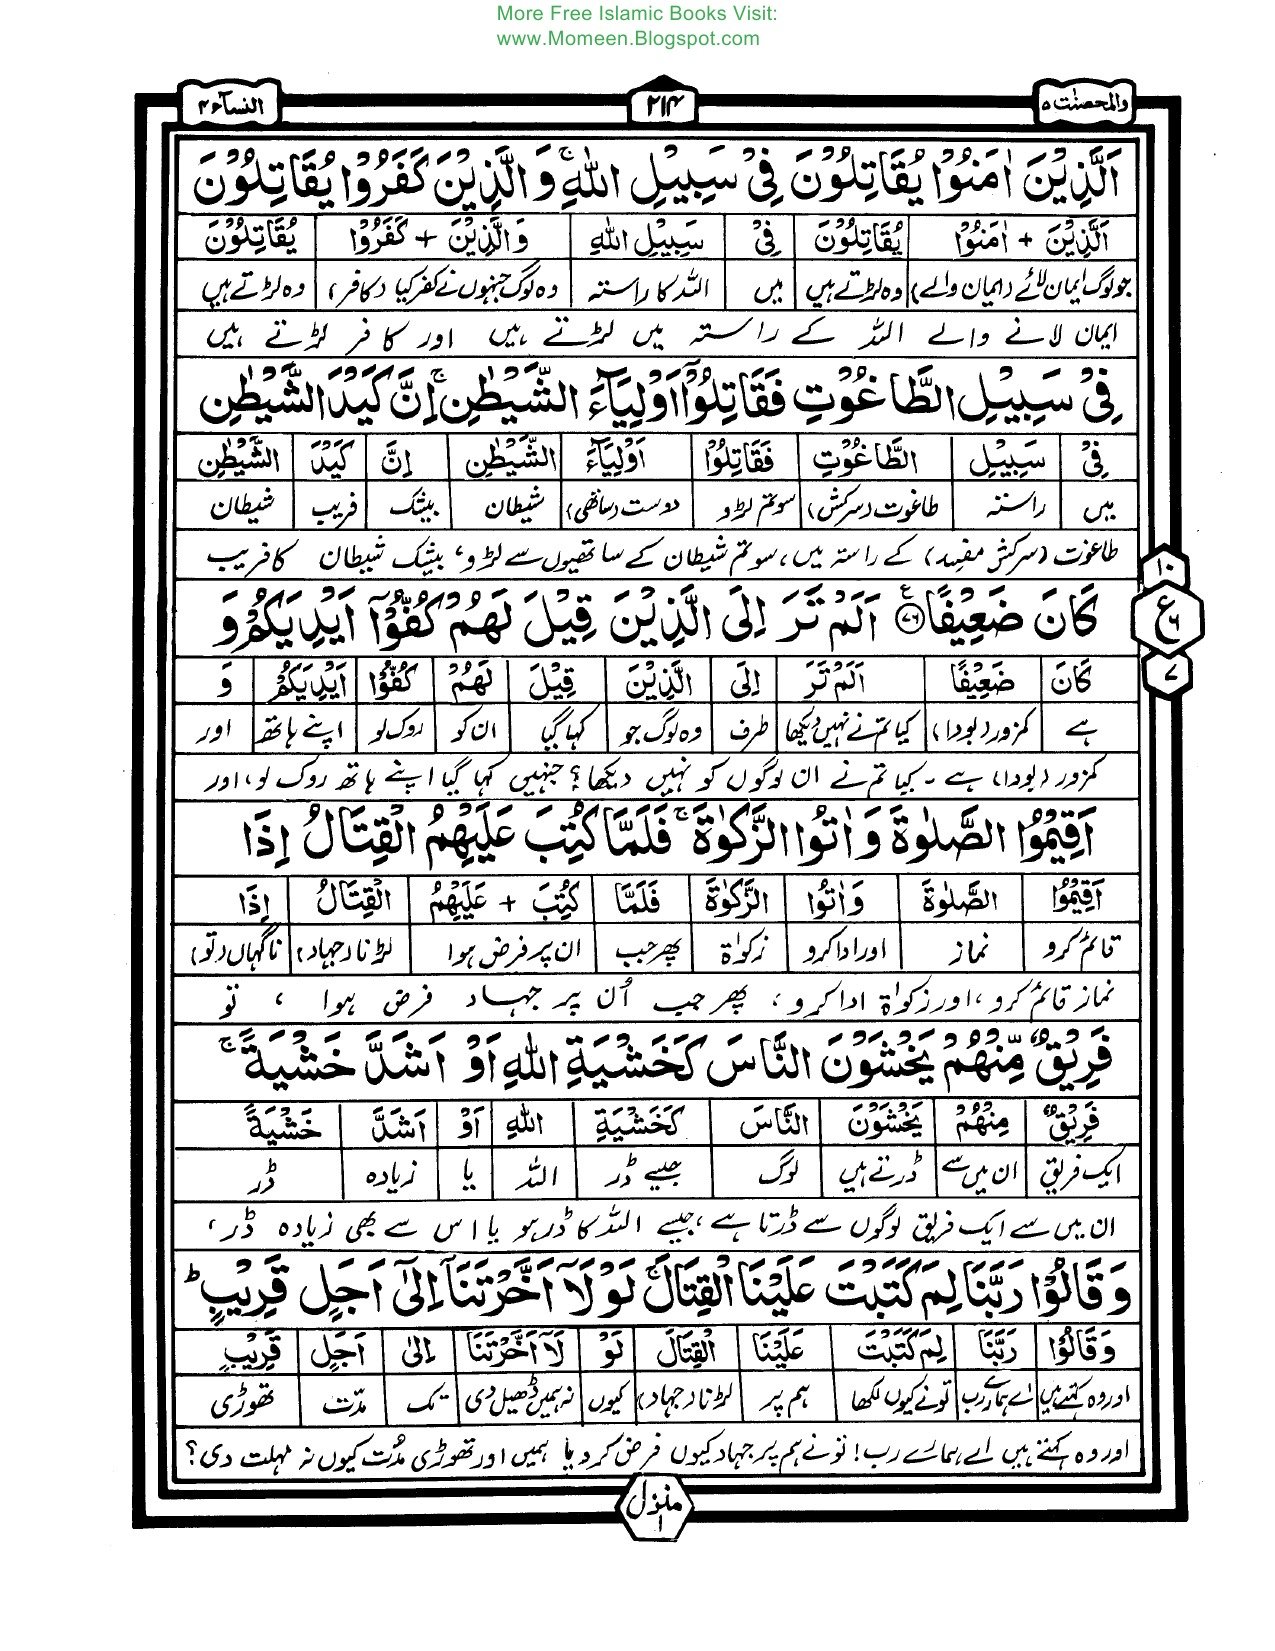 More Free Islamic Books Visit:
www.Momeen.Blogspot.com
والمحصنٰت ۵
۲۱۴
النسآء ۴
اَلَّذِیۡنَ اٰمَنُوۡا یُقَاتِلُوۡنَ فِیۡ سَبِیۡلِ اللّٰہِ ۚ وَالَّذِیۡنَ کَفَرُوۡا یُقَاتِلُوۡنَ
اَلَّذِیۡنَ + اٰمَنُوۡا یُقَاتِلُوۡنَ فِیۡ سَبِیۡلِ اللّٰہِ وَالَّذِیۡنَ + کَفَرُوۡا یُقَاتِلُوۡنَ
جو لوگ ایمان لائے (ایمان والے) وہ لڑتے ہیں میں اللہ کا راستہ وہ لوگ جنہوں نے کفر کیا (کافر) وہ لڑتے ہیں
ایمان لانے والے اللہ کے راستہ میں لڑتے ہیں اور کافر لڑتے ہیں
فِیۡ سَبِیۡلِ الطَّاغُوۡتِ فَقَاتِلُوۡۤا اَوۡلِیَآءَ الشَّیۡطٰنِ ۚ اِنَّ کَیۡدَ الشَّیۡطٰنِ
فِیۡ سَبِیۡلِ الطَّاغُوۡتِ فَقَاتِلُوۡا اَوۡلِیَآءَ الشَّیۡطٰنِ اِنَّ کَیۡدَ الشَّیۡطٰنِ
میں راستہ طاغوت (سرکش) سو تم لڑو دوست (ساتھی) شیطان بیشک فریب شیطان
طاغوت (سرکش مفسد) کے راستہ میں، سو تم شیطان کے ساتھیوں سے لڑو، بیشک شیطان کا فریب
کَانَ ضَعِیۡفًا ﴿۷۶﴾ ع اَلَمۡ تَرَ اِلَی الَّذِیۡنَ قِیۡلَ لَہُمۡ کُفُّوۡۤا اَیۡدِیَکُمۡ وَ
۱۰
ع ۶
۷
کَانَ ضَعِیۡفًا اَلَمۡ تَرَ اِلَی الَّذِیۡنَ قِیۡلَ لَہُمۡ کُفُّوۡۤا اَیۡدِیَکُمۡ وَ
ہے کمزور (بودا) کیا تم نے نہیں دیکھا طرف وہ لوگ جو کہا گیا ان کو روک لو اپنے ہاتھ اور
کمزور (بودا) ہے ۔ کیا تم نے ان لوگوں کو نہیں دیکھا؟ جنہیں کہا گیا اپنے ہاتھ روک لو، اور
اَقِیۡمُوا الصَّلٰوۃَ وَاٰتُوا الزَّکٰوۃَ ۚ فَلَمَّا کُتِبَ عَلَیۡہِمُ الۡقِتَالُ اِذَا
اَقِیۡمُوا الصَّلٰوۃَ وَاٰتُوا الزَّکٰوۃَ فَلَمَّا کُتِبَ + عَلَیۡہِمُ الۡقِتَالُ اِذَا
قائم کرو نماز اور ادا کرو زکوٰۃ پھر جب ان پر فرض ہوا لڑنا (جہاد) ناگہاں (تو)
نماز قائم کرو، اور زکوٰۃ ادا کرو، پھر جب اُن پر جہاد فرض ہوا ، تو
فَرِیۡقٌ مِّنۡہُمۡ یَخۡشَوۡنَ النَّاسَ کَخَشۡیَۃِ اللّٰہِ اَوۡ اَشَدَّ خَشۡیَۃً ۚ
فَرِیۡقٌ مِنۡہُمۡ یَخۡشَوۡنَ النَّاسَ کَخَشۡیَۃِ اللّٰہِ اَوۡ اَشَدَّ خَشۡیَۃً
ایک فریق ان میں سے ڈرتے ہیں لوگ جیسے ڈر اللہ یا زیادہ ڈر
ان میں سے ایک فریق لوگوں سے ڈرتا ہے، جیسے اللہ کا ڈر ہو یا اس سے بھی زیادہ ڈر ،
وَقَالُوۡا رَبَّنَا لِمَ کَتَبۡتَ عَلَیۡنَا الۡقِتَالَ ۚ لَوۡ لَاۤ اَخَّرۡتَنَاۤ اِلٰۤی اَجَلٍ قَرِیۡبٍ ؕ
وَقَالُوۡا رَبَّنَا لِمَ کَتَبۡتَ عَلَیۡنَا الۡقِتَالَ لَوۡ لَاۤ اَخَّرۡتَنَا اِلٰی اَجَلٍ قَرِیۡبٍ
اور وہ کہتے ہیں اے ہمارے رب تو نے کیوں لکھا ہم پر لڑنا (جہاد) کیوں نہ ہمیں ڈھیل دی تک مدّت تھوڑی
اور وہ کہتے ہیں اے ہمارے رب! تو نے ہم پر جہاد کیوں فرض کر دیا ہمیں اور تھوڑی مُدّت کیوں نہ مہلت دی؟
منزل ۱